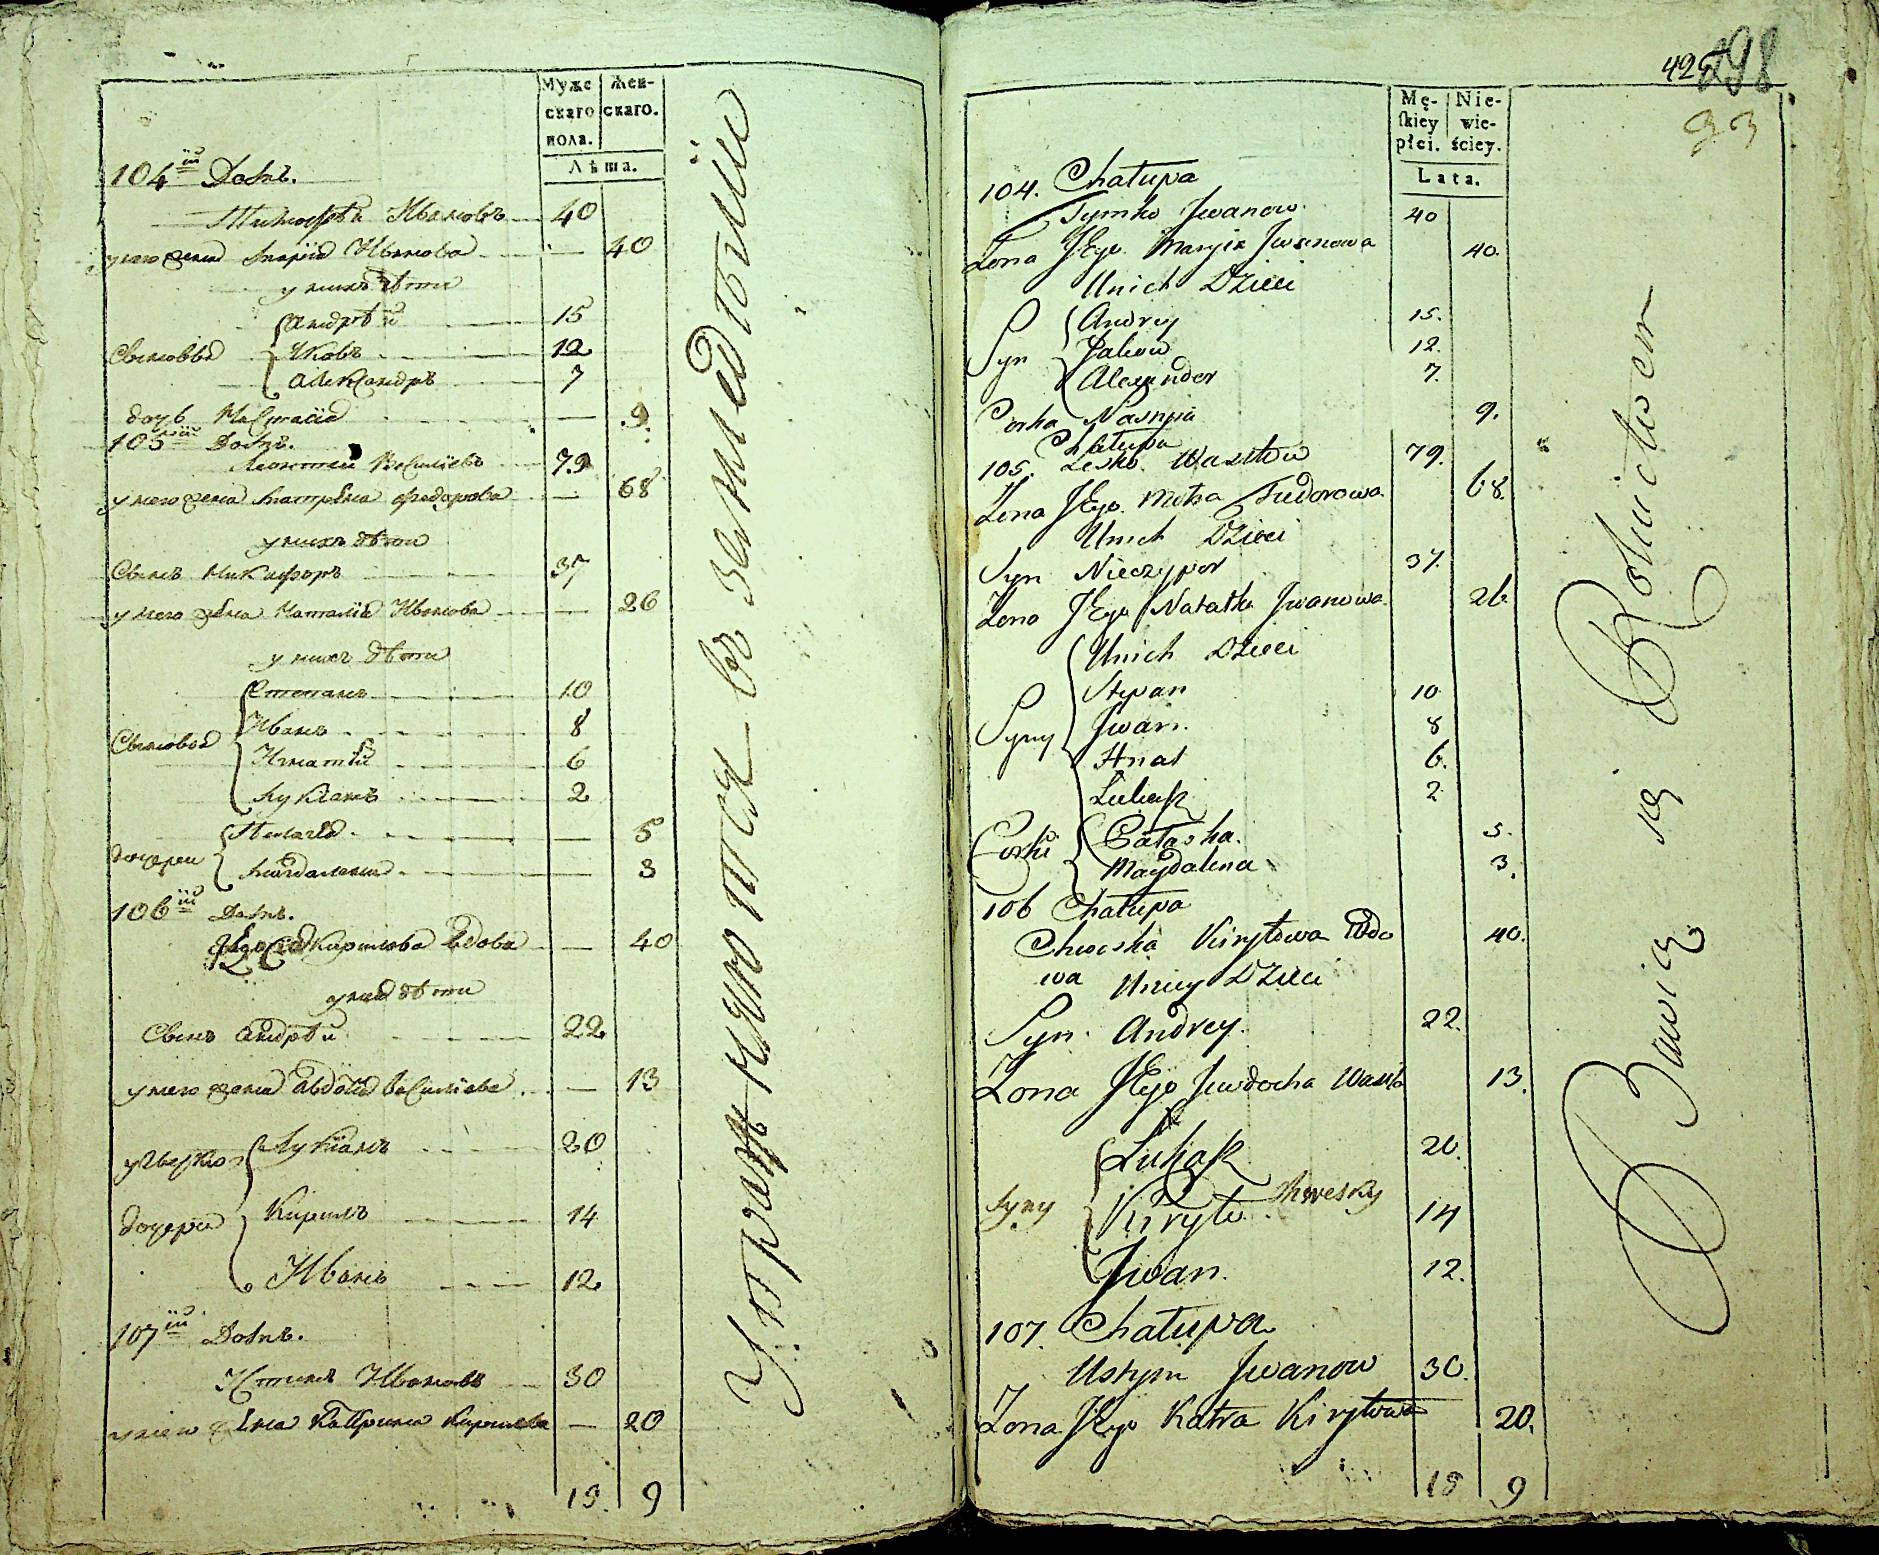 Муже
скаго
пола.
Жен-
скаго.
Лѣта.
104ій Домъ.
Тимофѣй Ивановъ 40
у него жена Марія Иванова — 40
у нихъ дѣти
Андрѣй 15
Сыновья Яковъ 12
Александръ 7
дочь Настасія — 9
105ій Домъ.
Леонтей Васильевъ 79
у него жена Матрена Федорова — 68
у нихъ дѣти
Сынъ Никифоръ 37
у него жена Наталія Иванова — 26
у нихъ дѣти
Степанъ 10
Иванъ 8
Сыновья
Игнатій 6
Лукіанъ 2
Пелагея — 5
дочери
Магдалена — 3
106ій Домъ.
Кирилова вдова — 40
у ней дѣти
Сынъ Андрѣй 22
у него жена Авдотія Васильева — 13
Лукіанъ 20
дочери Кирилъ 14
Иванъ 12
107ій Домъ.
Устинъ Ивановъ 30
у него жена Катерина Кирилова — 20
19 9
Упражняются въ земледѣліи
425
298
93
Mę-
skiey
płci.
Nie-
wie-
ściey.
Lata.
104. Chałupa
Tymko Jwanow 40
Żona JEgo Maryia Jwanowa 40.
Unich Dzieci
Andrey 15.
Syn Jakow 12.
Alexander 7.
Corka Nastpia 9.
Chałupa
105. Lesko Wasilow 79.
Żona JEgo Motra Fudorowa 68.
Unich Dzieci
Syn Nieczypor 37.
Żona JEgo Natałka Jwanowa 26
Unich Dzieci
Stepan 10
Syny Jwan. 8
Hnat 6.
Łukasz 2
Corki Pałaska. 5.
Magdalena 3.
106 Chałupa
Chweska Kiryłowa Wdo 40.
wa Uniey Dzieci
Syn Andrey. 22.
Żona JEgo Jewdocha Wasil 13.
Łukasz 20.
Syny Kiryło Chwesky 14
Jwan. 12.
107. Chałupa
Ustym Jwanow 30.
Żona JEgo Katra Kiryłowa 20.
19 9
Bawią się Rolnictwem